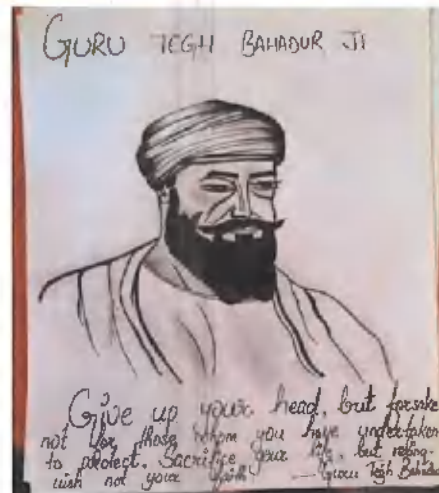 GURU TEGH BAHADUR JI
Give up your head, but forsake
not for those whom you have undertaken
to protect. Sacrifice your life, but relinq-
uish not your faith. — Guru Tegh Bahadur